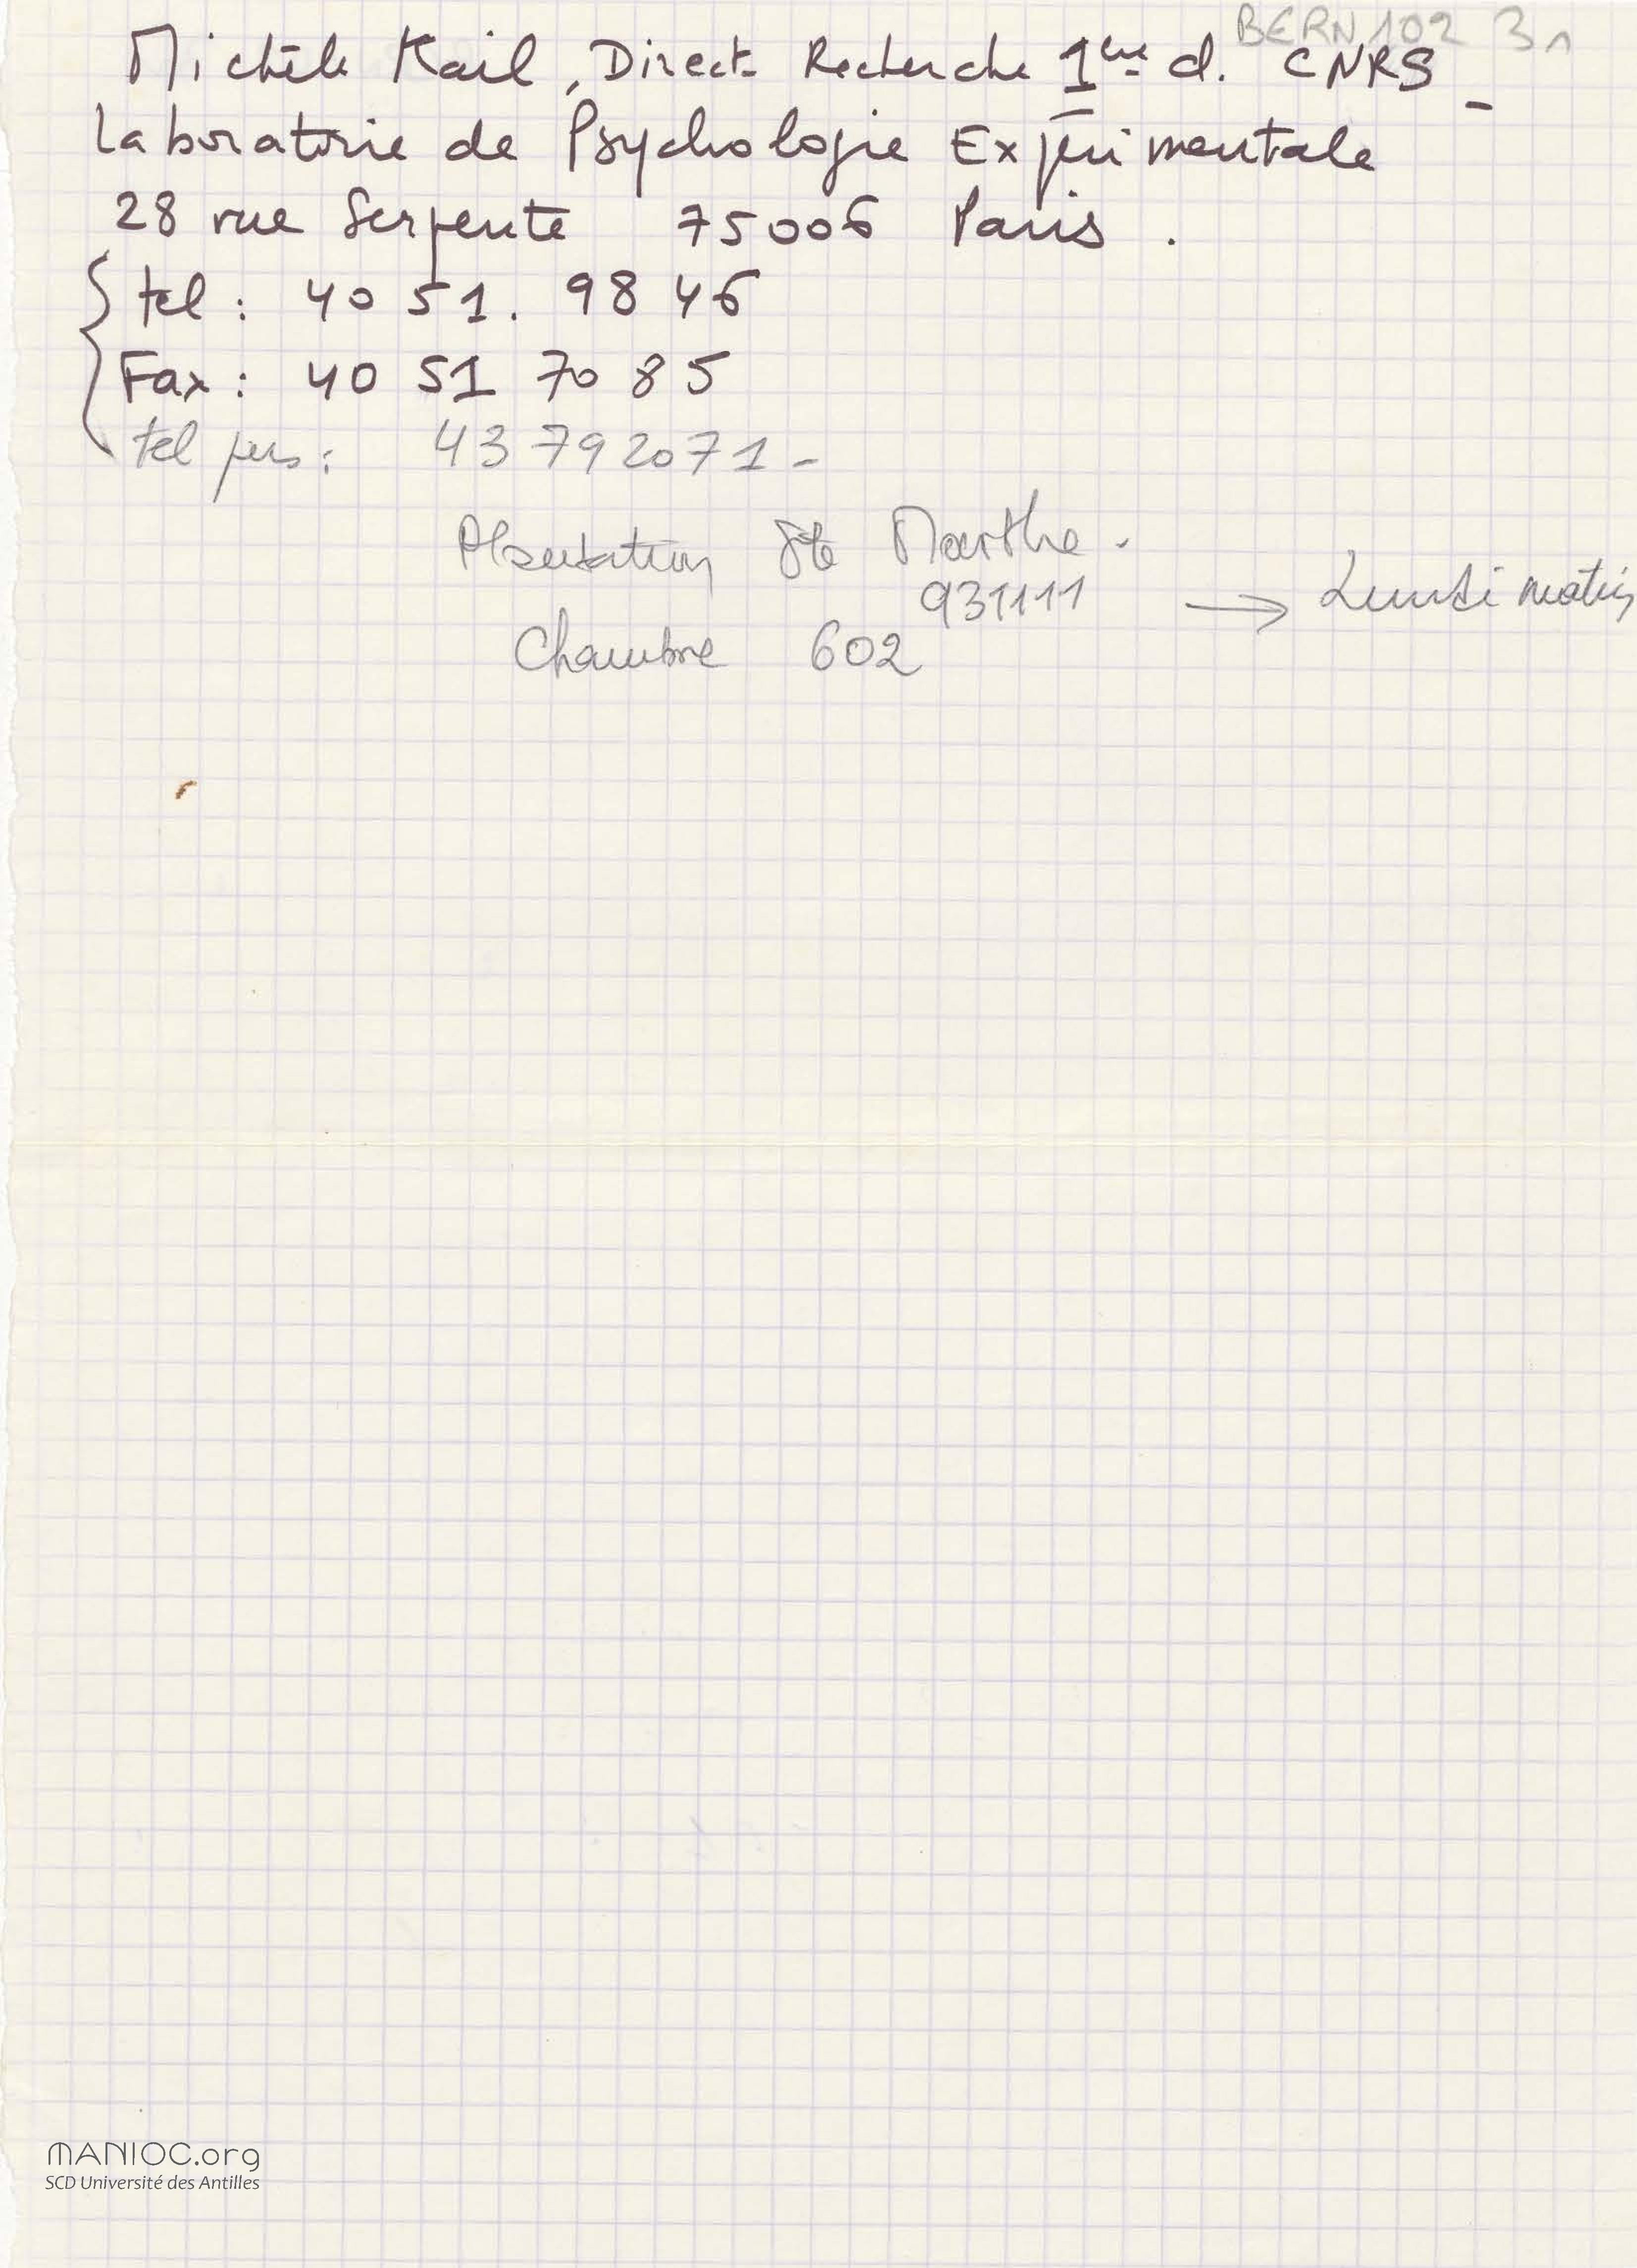 BERN 102 31
Michèle Kail, Direct. Recherche 1ère cl. CNRS -
Laboratoire de Psychologie Expérimentale
28 rue Serpente 75006 Paris.
tel : 40 51. 98 46
Fax : 40 51 70 85
tel pers : 43 79 20 71 -
Plantation Ste Marthe -
931111 → Lundi matin
Chambre 602
MANIOC.org
SCD Université des Antilles